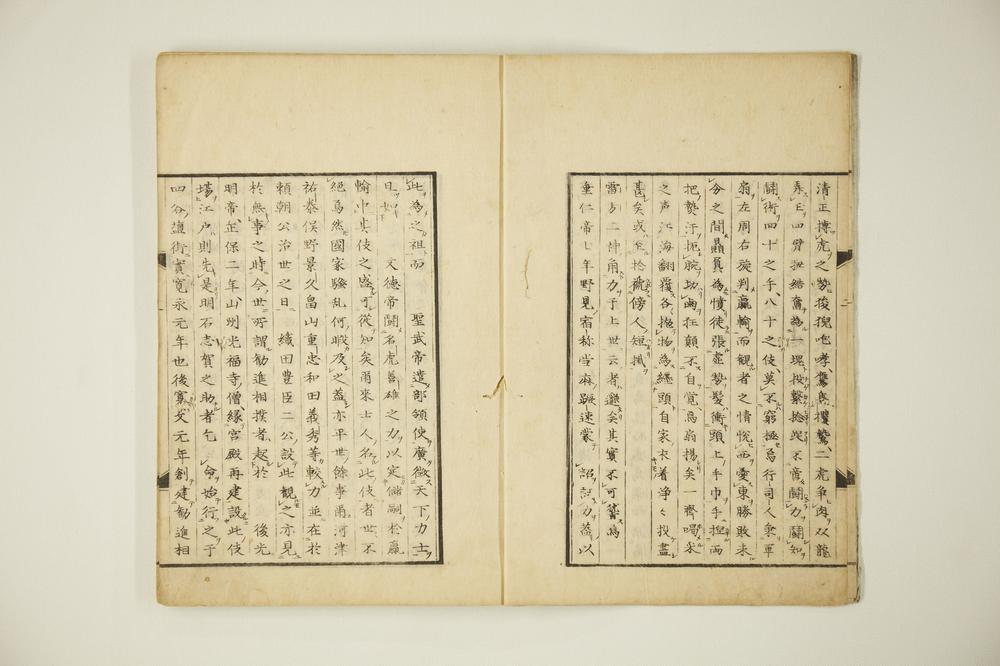 清正搏虎之勢俊猊咆哮鷹隼攫鷙二虎争肉双龍
弄玉四臂扭結奮為一塊投繋捻
闘術四十之手八十之伎莫不窮極焉行司一人秉軍
扇左周右旋判贏輸而観者之情悦西愛東勝敗未
分之間贔屓為憤徒張虚勢髪衝頭上手巾手握両
把熱汗扼腕切歯狂顛不自覚焉扇揚矣一齊喝采
之声江海翻覆各擲物為纏頭自家衣着浄々投盡
甚矣或至於褫傍人短
力于上世云者邈矣其實不可
垂仁帝七年野見宿称当麻蹶速蒙詔試力蓋以
此為之祖而聖武帝遣部領使廣徴天下力士
旦如文徳帝闘名虎善雄之力以定儲嗣於贏
輸中其伎之盛可従知矣爾来士人名此伎者世不
絶焉然國家騒乱何暇及之蓋亦平世餘事爾河津
祐泰俣野景久畠山重忠和田義秀等較力並在於
頼朝公治世之日織田豊臣二公設此観之亦見
於無事之時今世所謂勧進相撲者起於後光
明帝正保二年山州光福寺僧縁宮殿再建設此伎
場江戸則先是明石志賀之助者乞命始行之于
四谷塩街實寛永元年也後寛文元年創建勧進相